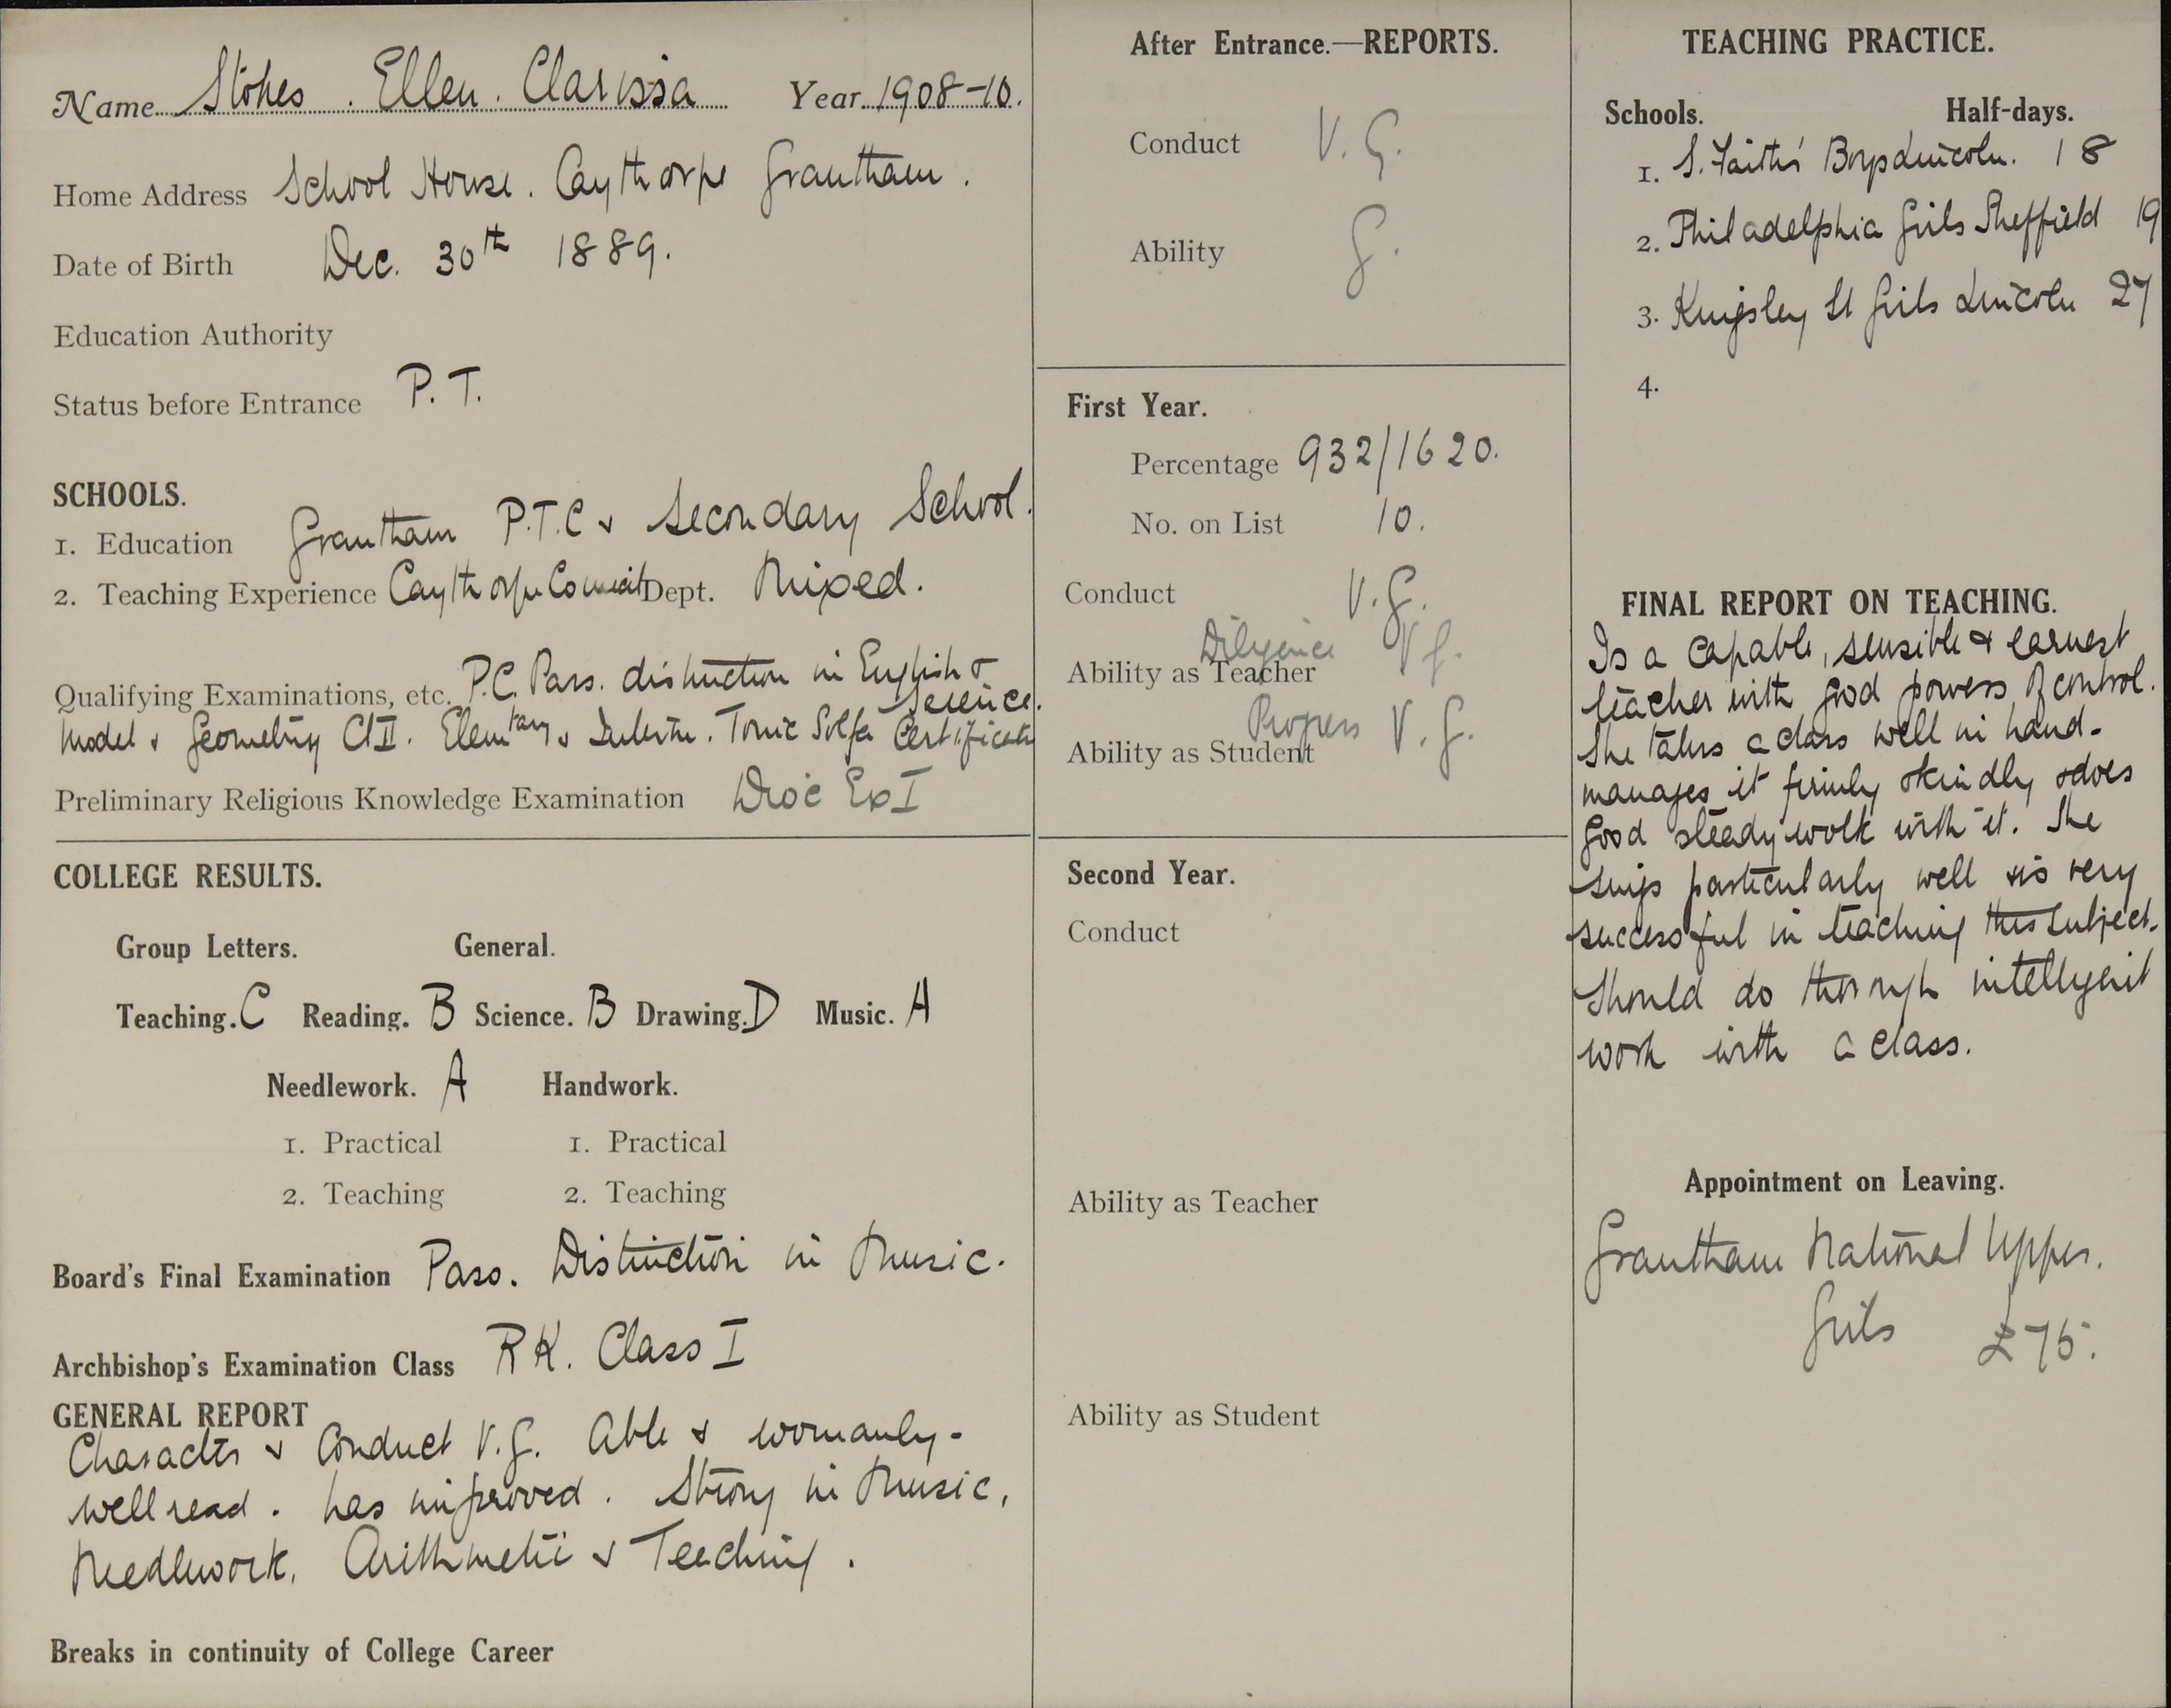 Name Stokes. Ellen. Clarissa Year 1908-10.
Home Address School House. Caythorpe Grantham.
Date of Birth Dec. 30th 1889.
Education Authority
Status before Entrance P.T.
SCHOOLS.
1. Education Grantham P.T.C & Secondary School.
2. Teaching Experience Caythorpe Council Dept. Mixed.
Qualifying Examinations, etc. P.C. Pass. distinction in English &
Science.
Model & Geometry Cl II. Elemtary & Interm. Tonic Solfa Certificate
Preliminary Religious Knowledge Examination Dioc Ex I
COLLEGE RESULTS.
Group Letters. General.
Teaching. C Reading. B Science. B Drawing. D Music. A
Needlework. A Handwork.
1. Practical 1. Practical
2. Teaching 2. Teaching
Board's Final Examination Pass. Distinction in Music.
Archbishop's Examination Class RK. Class I
GENERAL REPORT
Character & Conduct V.G. Able & womanly-
well read. has improved. Strong in Music,
Needlework, Arithmetic & Teaching.
Breaks in continuity of College Career
After Entrance.—REPORTS.
Conduct V.G.
Ability G.
First Year.
Percentage 932/1620.
No. on List 10.
Conduct V.G.
Diligence V G.
Ability as Teacher
Progress V.G.
Ability as Student
Second Year.
Conduct
Ability as Teacher
Ability as Student
TEACHING PRACTICE.
Schools. Half-days.
1. S. Faith's Boys Lincoln. 18
2. Philadelphia Girls Sheffield 19
3. Kingsley St Girls Lincoln 27
4.
FINAL REPORT ON TEACHING.
Is a capable, sensible & earnest
teacher with good powers of control.
She takes a class well in hand-
manages it firmly & kindly & does
good steady work with it. She
sings particularly well & is very
successful in teaching this subject.
Should do thorough intelligent
work with a class.
Appointment on Leaving.
Grantham National Upper.
Girls £75.